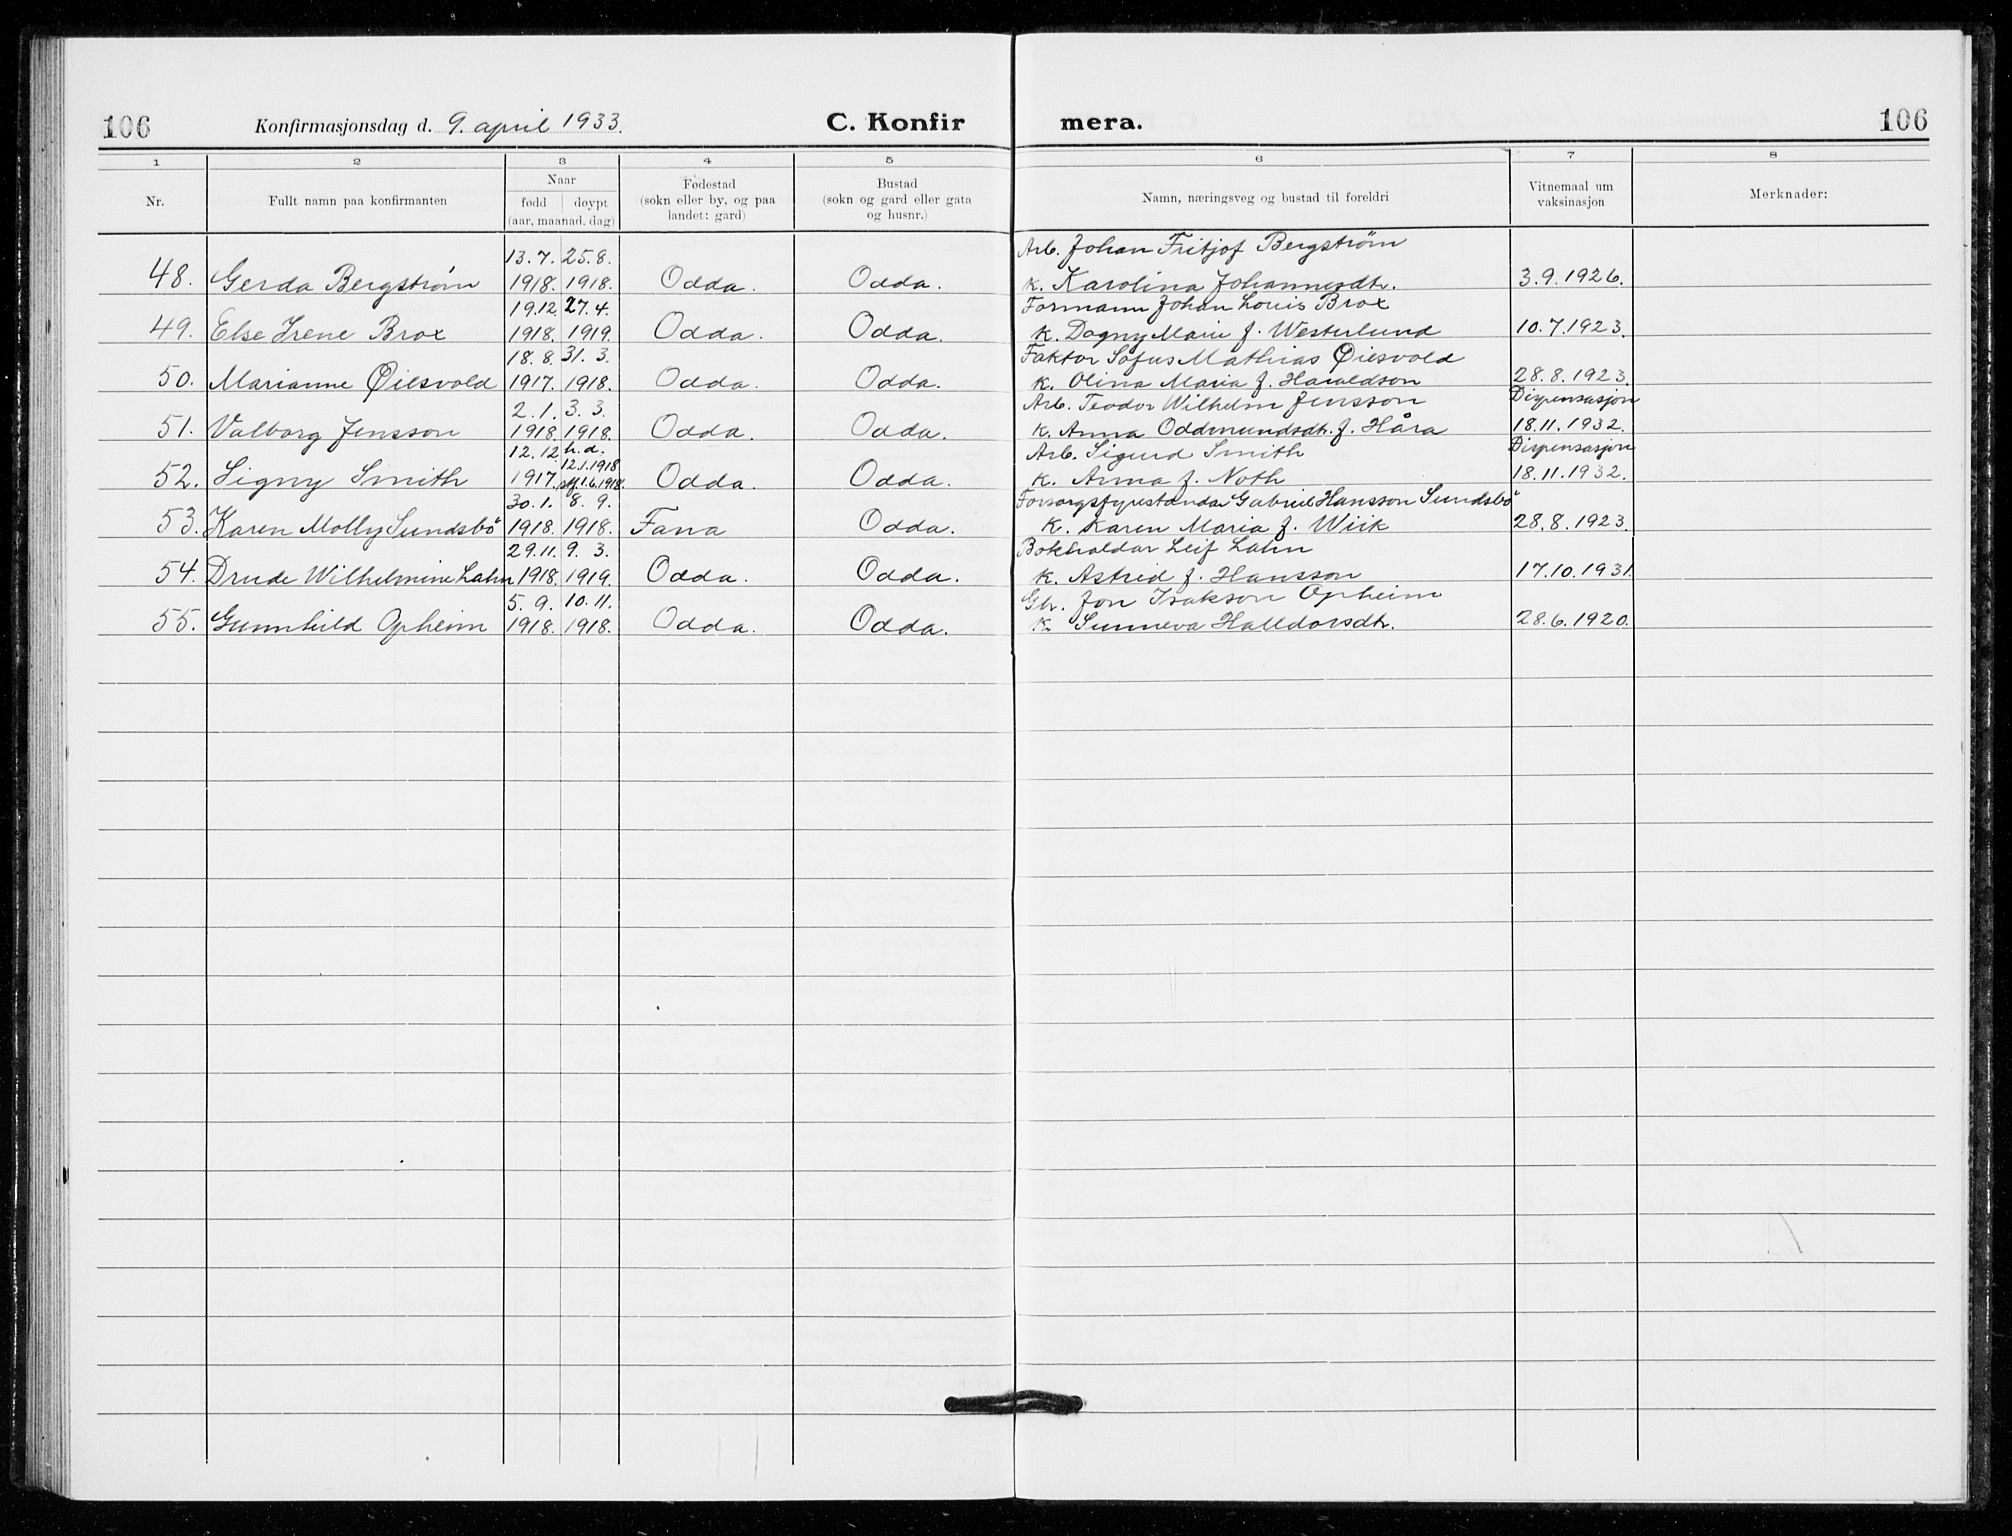 106 Konfirmasjonsdag d. 9. april 1933. C. Konfirmera. 106
1 2 3 4 5 6 7 8
Nr. Fullt namn paa konfirmanten Naar født døypt (aar, maanad, dag) Fødestad (sokn eller by, og paa landet: gard) Bustad (sokn og gard eller gata og husnr.) Namn, næringsveg og bustad til foreldri Vitnemaal um vaksinasjon Merknader:
13.7. 25.8. Arb. Johan Fritjof Bergstrøm
48. Gerda Bergstrøm 1918. 1918. Odda. Odda. k. Karolina Johannesdtr. 3.9.1926.
19.12. 27.4. Formann Johan Louis Brox
49. Else Irene Brox 1918. 1919. Odda. Odda. k. Dagny Marie f. Westerlund 10.7.1923.
18.8. 31.3. Faktor Sofus Mathias Øiesvold
50. Marianne Øiesvold 1917. 1918. Odda. Odda. k. Olina Maria f. Haraldson 28.8.1923.
2.1. 3.3. Arb. Teodor Wilhelm Jensson Dispensasjon
51. Valborg Jensson 1918. 1918. Odda. Odda. k. Anna Oddmundsdtr. f. Håra 18.11.1932.
12.12. h.d. 12.1.1918 Arb. Sigurd Smith Dispensasjon
52. Signy Smith 1917. stf. 1.6.1918. Odda. Odda. k. Anna f. Noth 18.11.1932.
30.1. 8.9. Forsorgsfyrestandar Gabriel Hansson Sundsbö
53. Karen Molly Sundsbö 1918. 1918. Fana Odda. k. Karen Maria f. Wiik 28.8.1923.
29.11. 9.3. Bokhaldar Leif Lahn
54. Drude Wilhelmine Lahn 1918. 1919. Odda. Odda. k. Astrid f. Hansson 17.10.1931.
5.9. 10.11. Gbr. Jon Isakson Opheim
55. Gunnhild Opheim 1918. 1918. Odda. Odda. k. Sunneva Halldorsdtr. 28.6.1920.